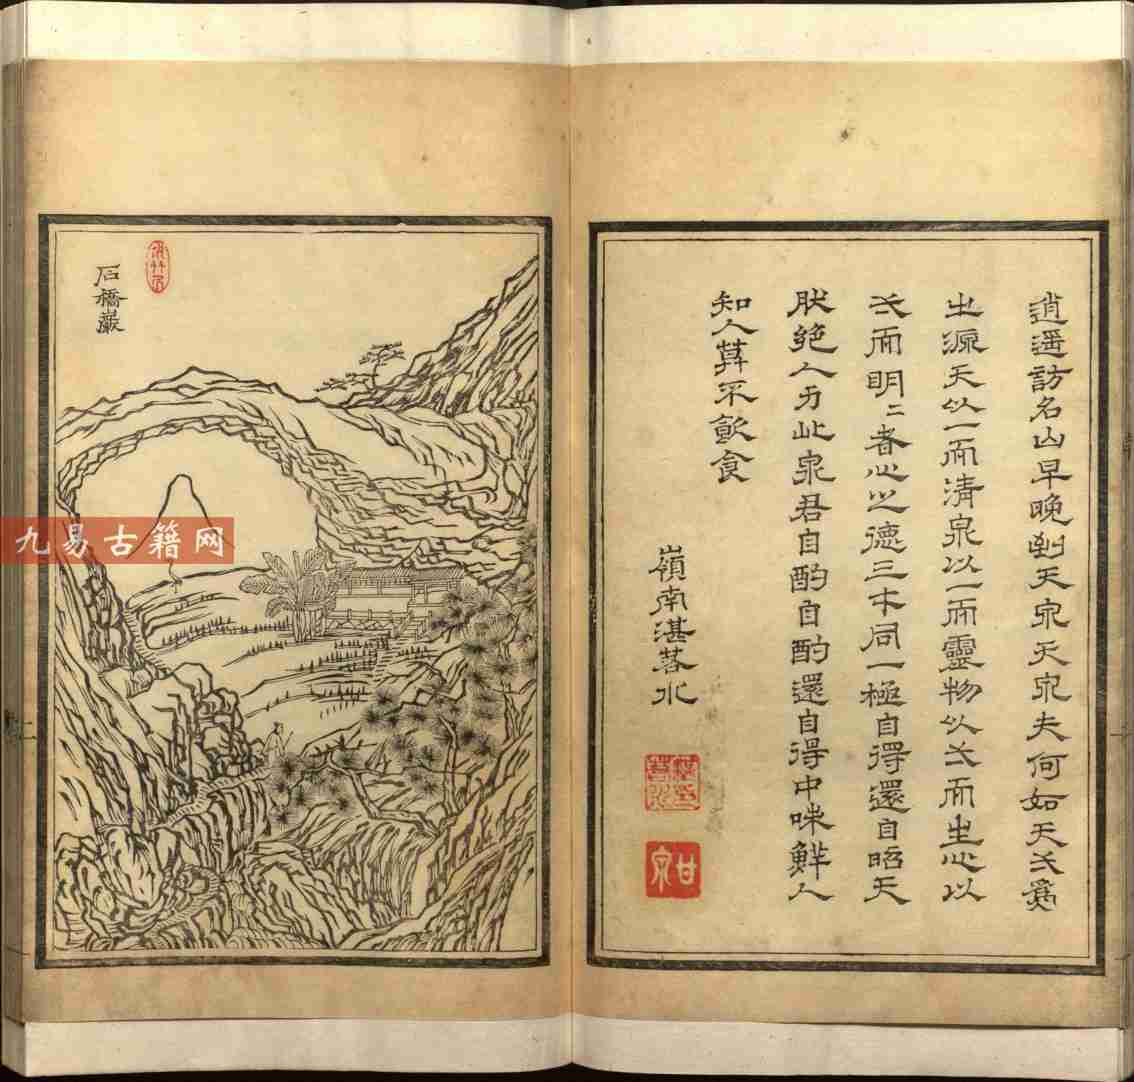 逍遥訪名山早晚到天泉天泉夫何如天爲
之源天以一而清泉以一而靈物以而生心以
而明二者心之德三才同一極自得還自昭天
肰絶人力此泉君自酌自酌還自得中味鮮人
知人莫不飲食
嶺南湛若水
甘泉
石橋巖
九易古籍网